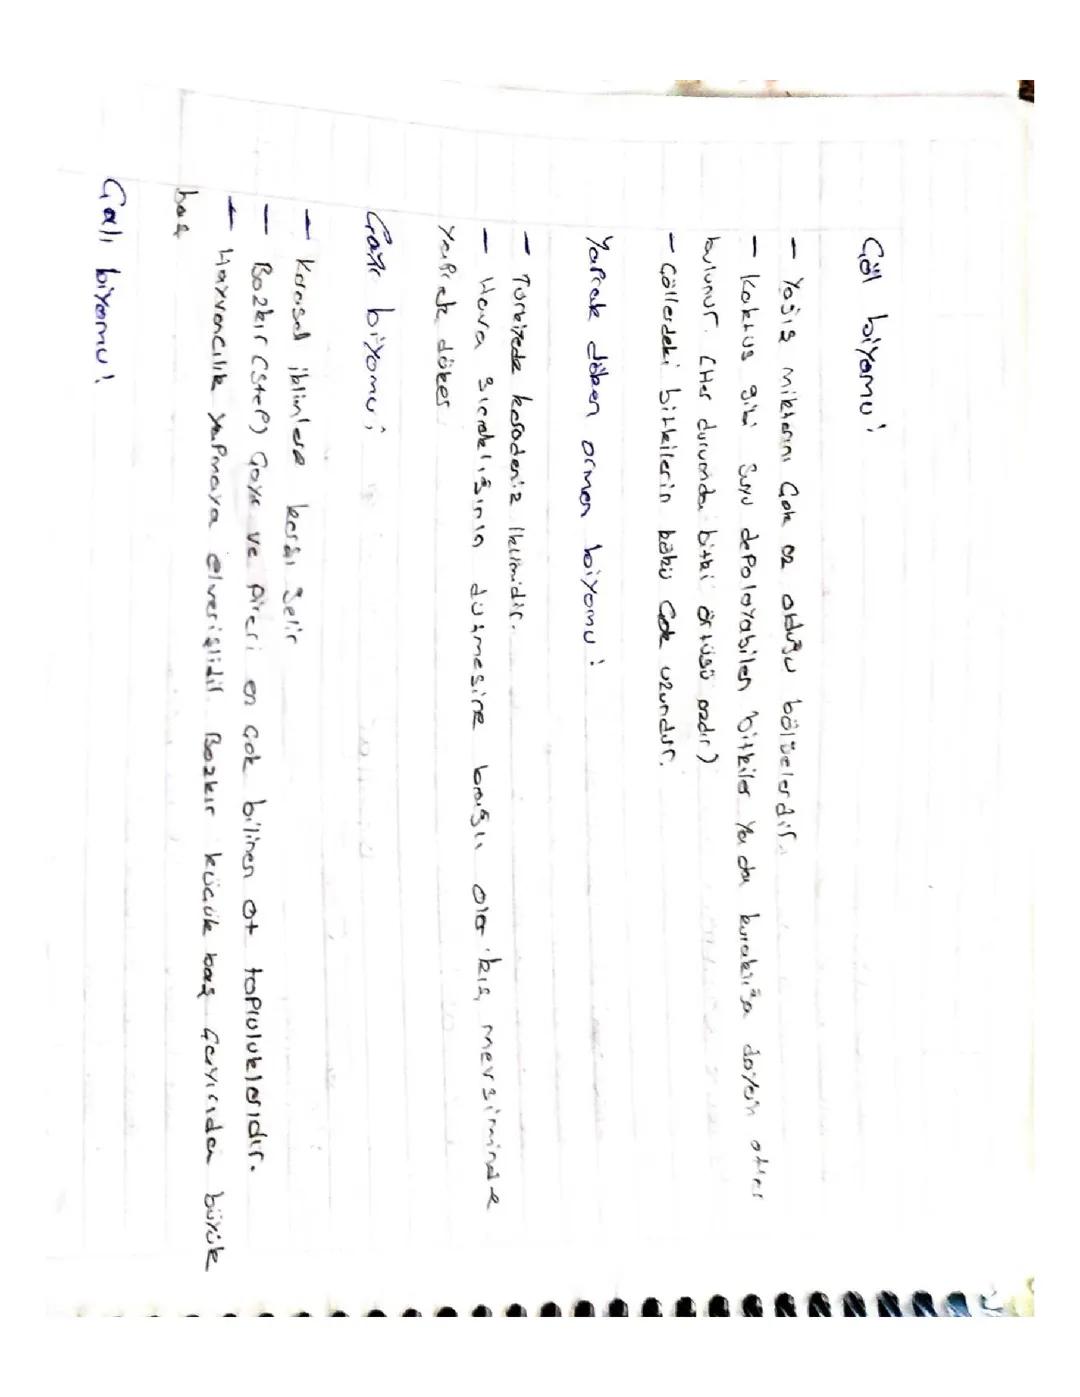 Çöl biyomu:
- Yağış miktarını Çok az olduğu bölgelerdir.
- Kaktüs gibi suyu depolayabilen bitkiler ya da kuraklığa dayanı otlar
bulunur. (Her durumda bitki örtüsü azdır)
- Çöllerdeki bitkilerin kökü Çok uzundur.
Yaprak döken orman biyomu:
- Türkiyede karadeniz iklimidir.
- Hava sıcaklığının düşmesine bağlı olarak kış mevsiminde
Yaprak döker.
Çayır biyomu;
- Karasal iklimlere karşı gelir
- Bozkır (step) Çayır ve pireri en çok bilinen ot topluluklarıdır.
- Hayvancılık yapmaya elverişlidir. Bozkır küçük baş Çayırıdan büyük
baş
Çalı biyomu: